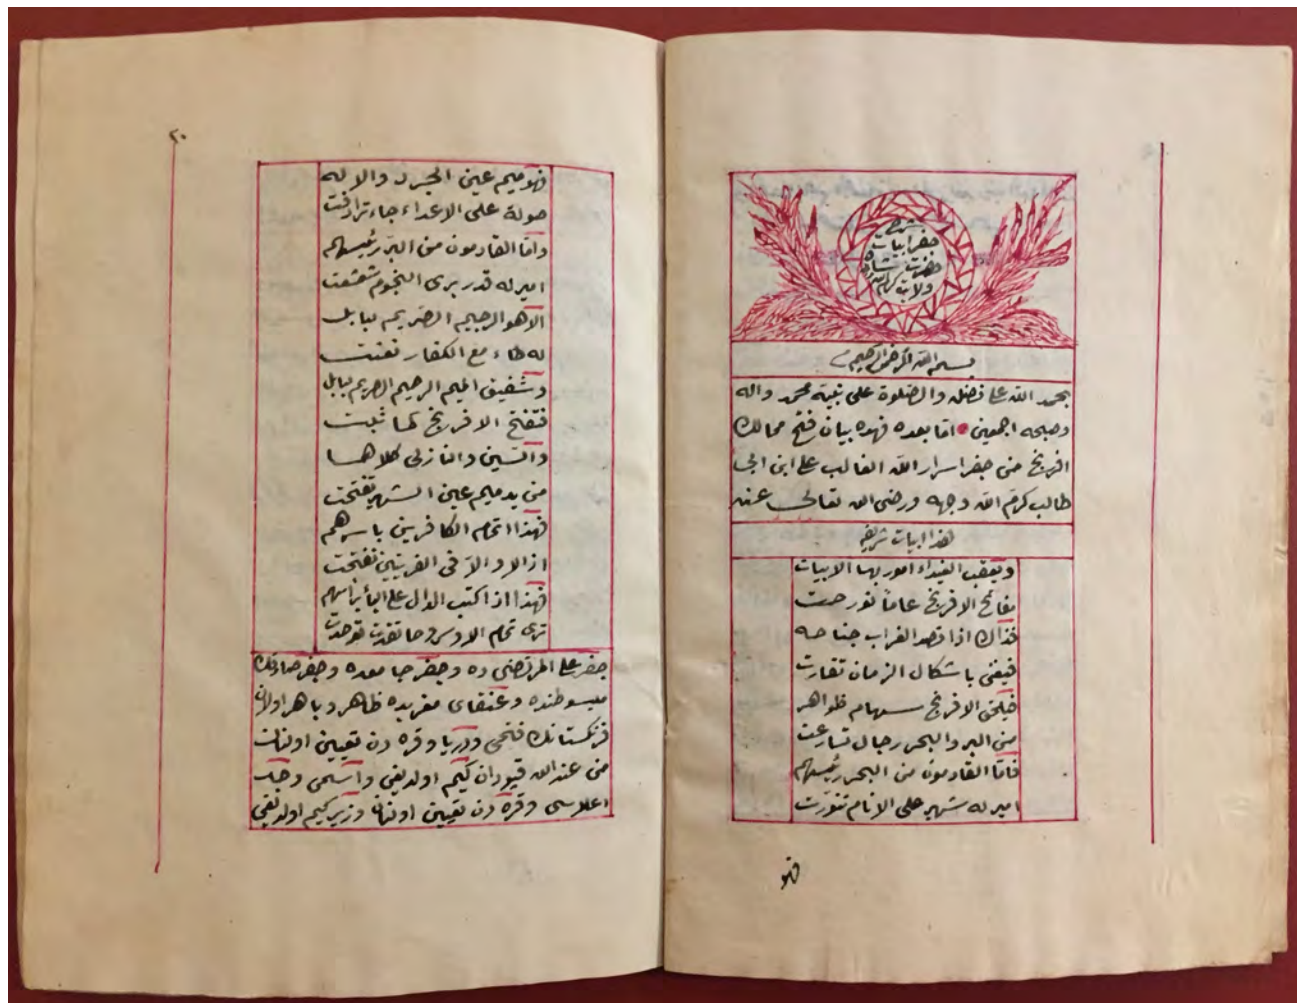 بشرح
جفر ابيات
حضرت شاه
ولايت كرم الله
بسم الله الرحمن الرحيم
بحمد الله على فضله والصلوة على نبيه محمد واله
وصحبه اجمعين اما بعده فهذه بيان فتح ممالك
افرنج من جفر اسرار الله الغالب على ابن ابى
طالب كرم الله وجهه ورضى الله تعالى عنه
هذا ابيات شريفه
ويعقب الفيداء امور بها الابيات
مفاتح الافرنج عاما تورخت
فذاك اذا قصد الغراب جناحه
فيفنى باشكال الزمان تقارت
فيلحق الافرنج سهام ظواهر
من البر والبحر رجال تسارعت
فاما القادمون من البحر رئيسهم
امير له شهر على الانام تنورت
فهو
٢٠
فهو ميم عين الجرد والا له
صولة على الاعداء جاء ترادفت
واما القادمون من البر رئيسهم
امير له قدر يرى النجوم تشعشعت
الا هو الرحيم الصريم ببابل
له طاء مع الكفار تفنت
وشفيق الميم الرحيم الصريم ببابل
فتفتح الافرنج كما ثبت
والسين والنازلى كلاهما
من يد ميم عين الشهر تفتحت
فهذا اتمام الكافرين باسرهم
اذ الا والا فى القريتين تفتحت
فهذا اذا كتب الدال على الباء براسهم
ترى تمام الاوس وحا تفدت توحدت
جفر على المرتضى ده وجفر جامعده وجفر صادقك
مبسوطنده وعنقاى مغربده ظاهر وباهر اولان
فرنكستانك فتحى ودريا وقره دن تعيين اولنان
من عند الله قپودان كيم اولديغى واسمى وجد
اعلاسى وقره دن تعيين اولنان وزير كيم اولديغى